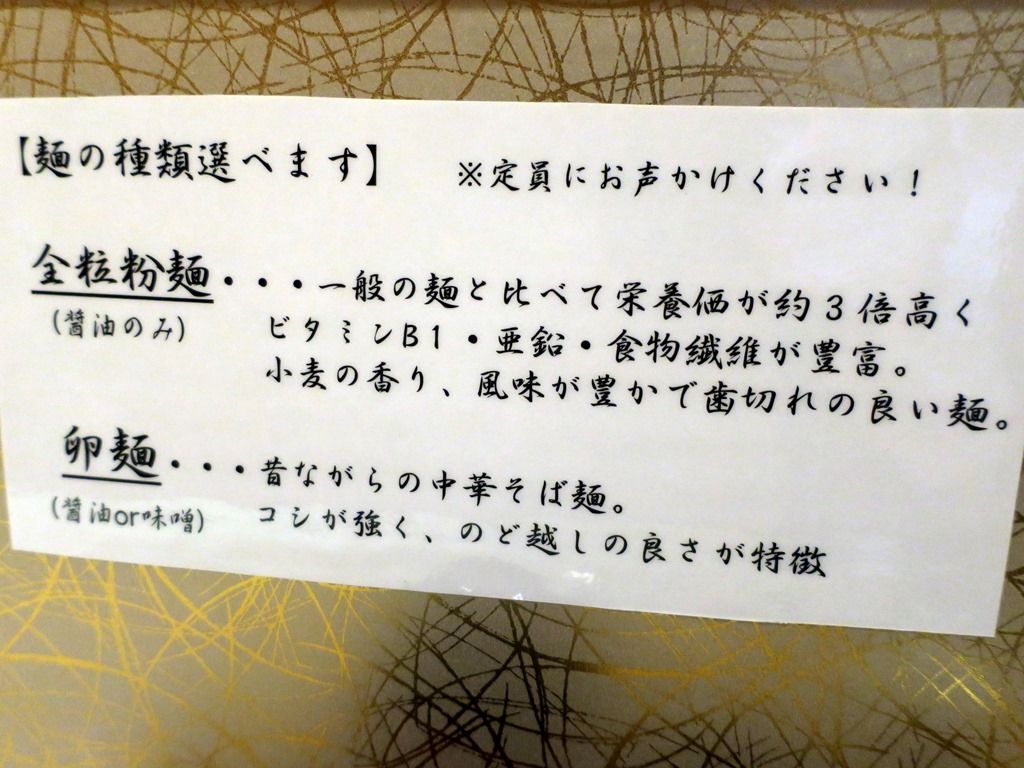 【麺の種類選べます】 ※定員にお声かけください！
全粒粉麺・・・一般の麺と比べて栄養価が約3倍高く
(醤油のみ) ビタミンB1・亜鉛・食物繊維が豊富。
小麦の香り、風味が豊かで歯切れの良い麺。
卵麺・・・昔ながらの中華そば麺。
(醤油or味噌) コシが強く、のど越しの良さが特徴